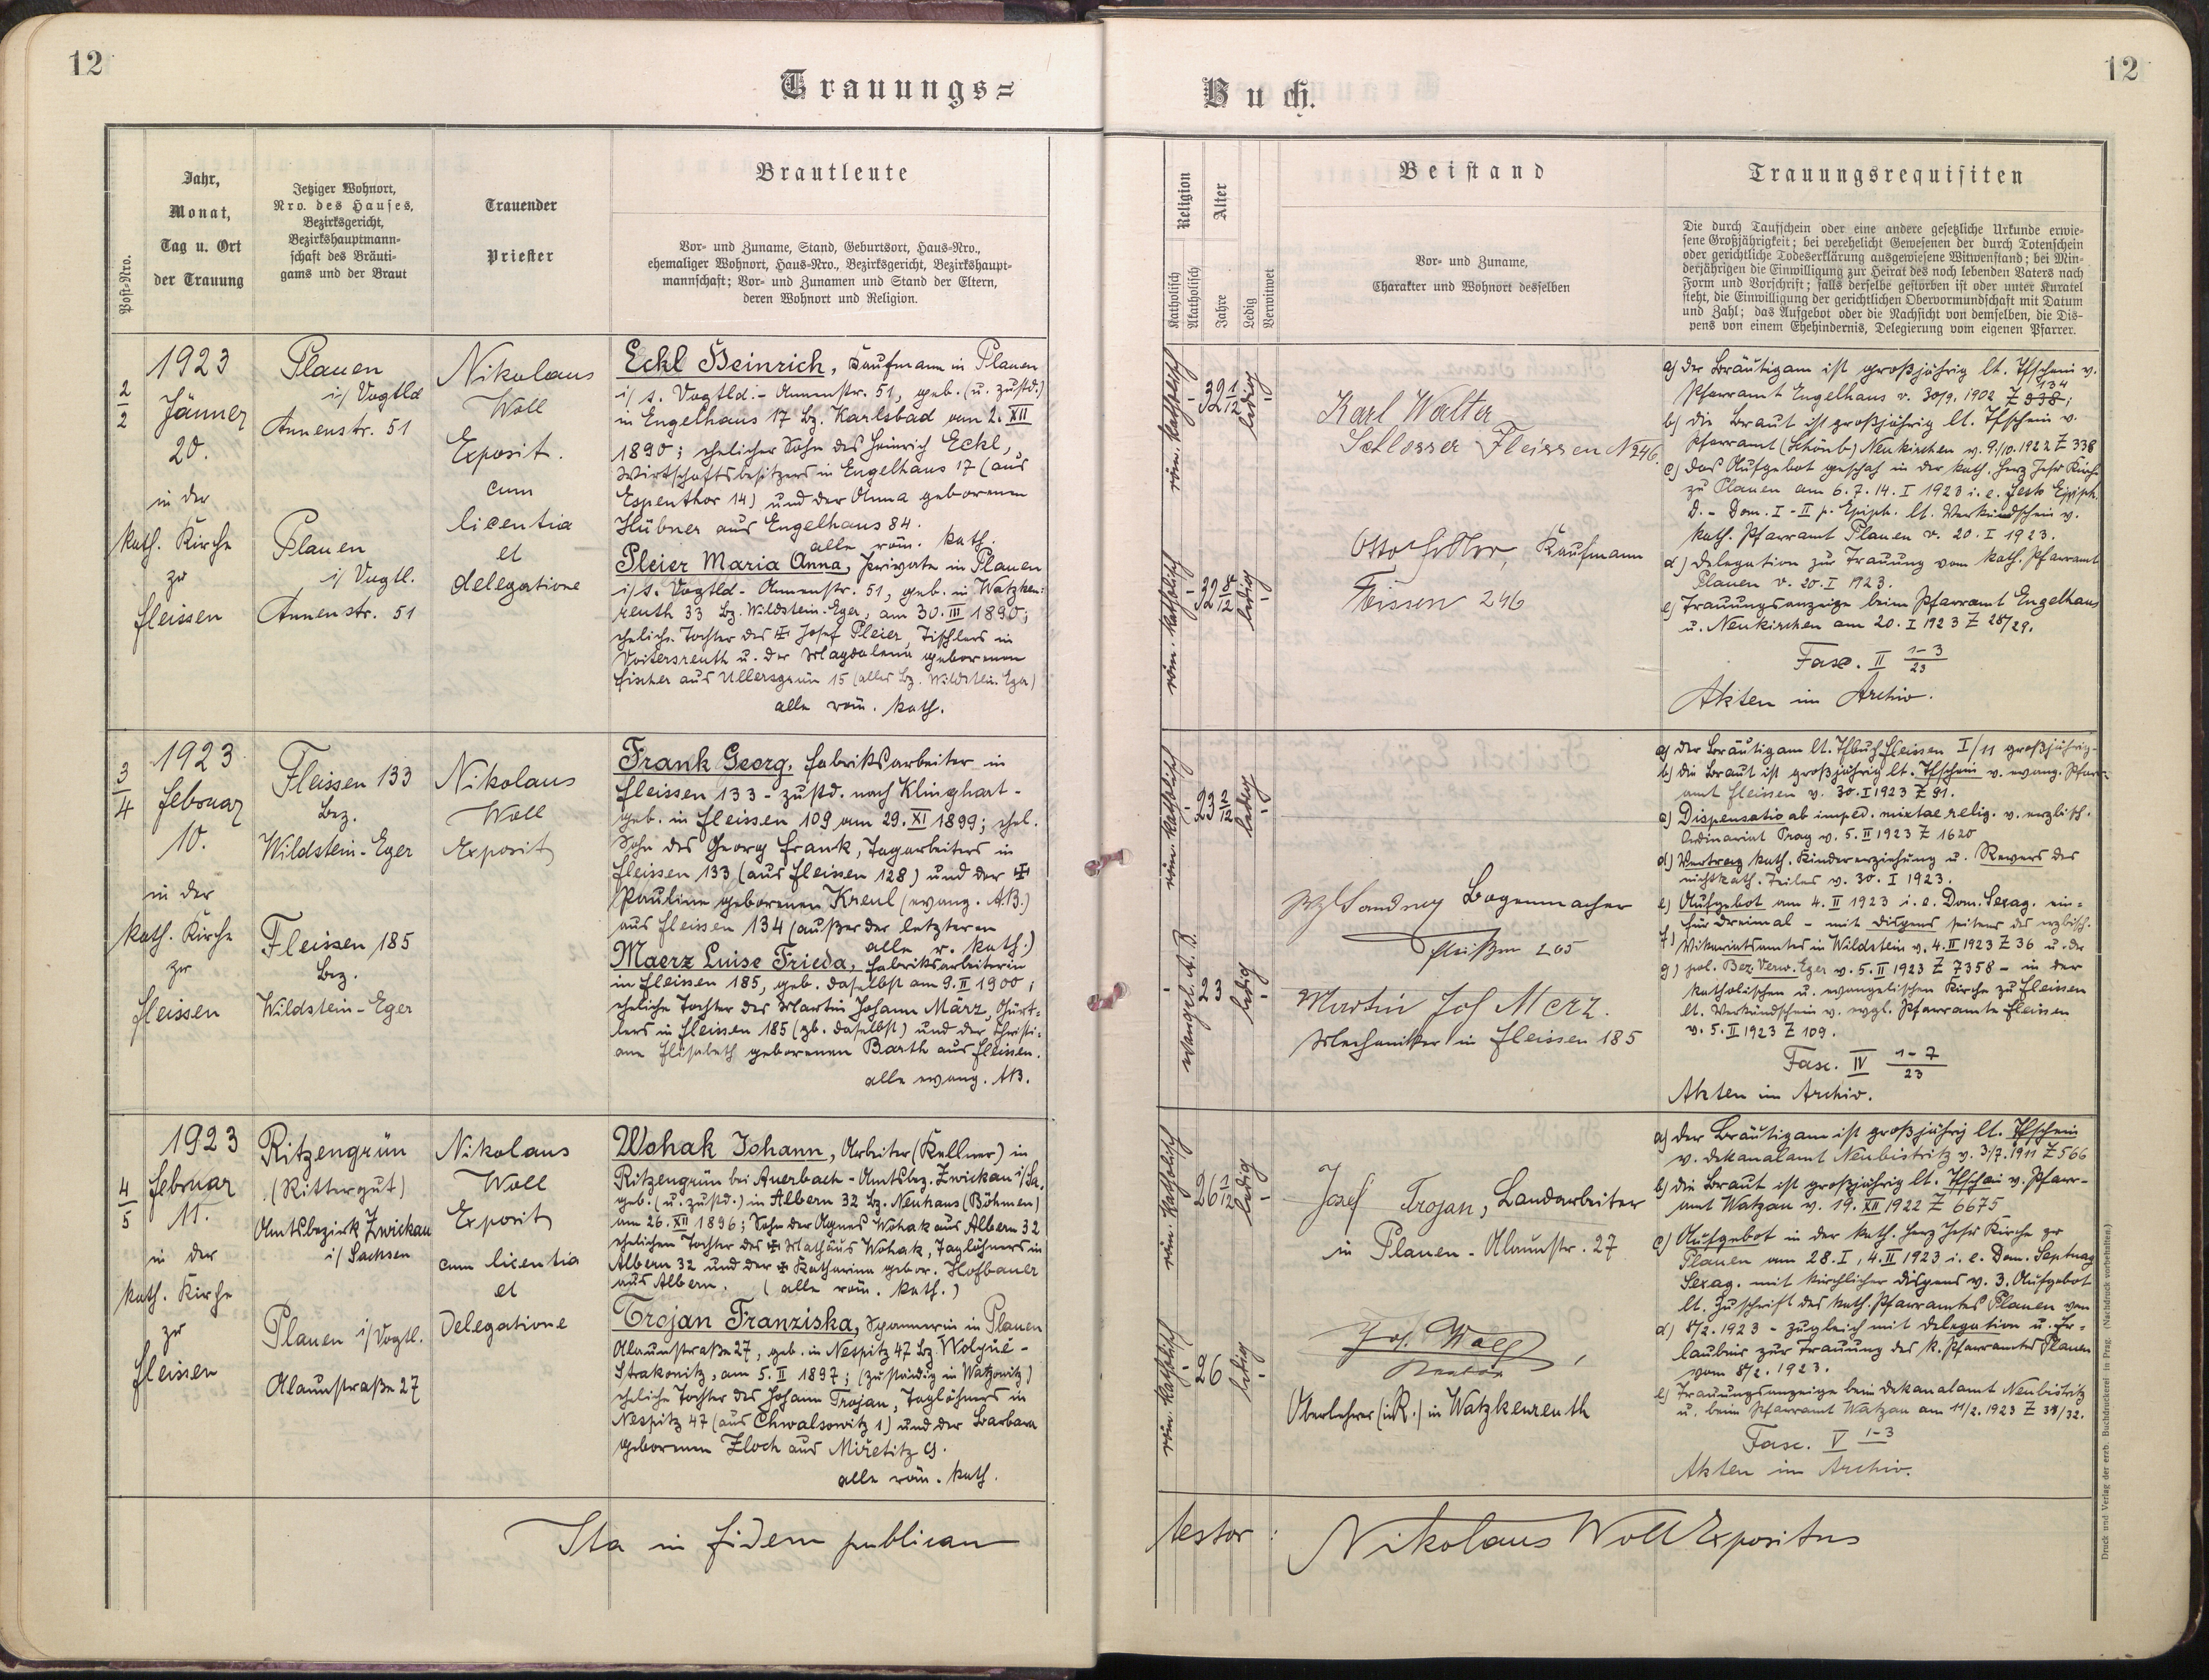 12
12
Trauungs=
Buch.
Post-Nro.
Jahr,
Monat,
Tag u. Ort
der Trauung
Jetziger Wohnort,
Nro. des Hauses,
Bezirksgericht,
Bezirkshauptmann-
schaft des Bräuti-
gams und der Braut
Trauender
Priester
Brautleute
Vor- und Zuname, Stand, Geburtsort, Haus-Nro.,
ehemaliger Wohnort, Haus-Nro., Bezirksgericht, Bezirkshaupt-
mannschaft; Vor- und Zunamen und Stand der Eltern,
deren Wohnort und Religion.
Religion
Katholisch
Akatholisch
Alter
Jahre
Ledig
Verwitwet
Beistand
Vor- und Zuname,
Charakter und Wohnort desselben
Trauungsrequisiten
Die durch Taufschein oder eine andere gesetzliche Urkunde erwie-
sene Großjährigkeit; bei verehelicht Gewesenen der durch Totenschein
oder gerichtliche Todeserklärung ausgewiesene Witwenstand; bei Min-
derjährigen die Einwilligung zur Heirat des noch lebenden Vaters nach
Form und Vorschrift; falls derselbe gestorben ist oder unter Kuratel
steht, die Einwilligung der gerichtlichen Obervormundschaft mit Datum
und Zahl; das Aufgebot oder die Nachsicht von demselben, die Dis-
pens von einem Ehehindernis, Delegierung vom eigenen Pfarrer.
2/2
1923
Jänner
20.
in der
kath. Kirche
zu
Fleissen
Plauen
i/ Vogtld
Annenstr. 51
Plauen
i/ Vogtl.
Annenstr. 51
Nikolaus
Woll
Exposit.
cum
licentia
et
delegatione
Eckl Heinrich, Kaufmann in Plauen
i/s. Vogtld. - Annenstr. 51, geb. (u. zustd.)
in Engelhaus 17 Bz. Karlsbad am 2. XII
1890; ehelicher Sohn des Heinrich Eckl,
Wirtschaftsbesitzers in Engelhaus 17 (aus
Espenthor 14) und der Anna geborenen
Hübner aus Engelhaus 84.
alle röm. kath.
Pleier Maria Anna, Private in Plauen
i/s. Vogtld - Annenstr. 51, geb. in Watzken-
reuth 33 Bz. Wildstein-Eger, am 30. III 1890;
eheliche Tochter des ✠ Josef Pleier, Tischlers in
Voitersreuth u. der Magdalena geborenen
Fischer aus Ullersgrün 15 (alles Bz. Wildstein-Eger)
alle röm. kath.
röm. katholisch
32 1/12
ledig
röm. katholisch
32
ledig
Karl Walter
Schlosser Fleissen N 246.
Otto, Kaufmann
Fleissen 246
a) der Bräutigam ist großjährig lt. Tfschein v.
Pfarramt Engelhaus v. 30/9. 1902 Z 838; 434
b) die Braut ist großjährig lt. Tfschein v.
Pfarramt (Schönb) Neukirchen v. 9./10. 1922 Z 338
c) das Aufgebot geschah in der kath. Herz Jesu Kirche
zu Plauen am 6. 7. 14. I 1923 i. e. Festo Epiph.
D. - Dom. I - II p. Epiph. lt. Verkündschein v.
kath. Pfarramt Plauen v. 20. I 1923.
d) Delegation zur Trauung vom kath. Pfarramt
Plauen v. 20. I 1923.
e) Trauungsanzeige beim Pfarramt Engelhaus
u. Neukirchen am 20. I 1923 Z 28/29.
Fasc. II 1-3/23
Akten im Archiv.
3/4
1923
Februar
10.
in der
kath. Kirche
zu
Fleissen
Fleissen 133
Bez.
Wildstein-Eger
Fleissen 185
Bez.
Wildstein-Eger
Nikolaus
Woll
Exposit
Frank Georg, Fabriksarbeiter in
Fleissen 133 - zustd. nach Klinghart -
geb. in Fleissen 109 am 29. XI 1899; ehel.
Sohn des Georg Frank, Tagarbeiters in
Fleissen 133 (aus Fleissen 128) und der ✠
Pauline geborenen Kreul (evang. A.B.)
aus Fleissen 134 (außer der letzteren
alle r. kath.)
Maerz Luise Frieda, Fabriksarbeiterin
in Fleissen 185, geb. daselbst am 9. II 1900;
eheliche Tochter des Martin Johann März, Gürt-
lers in Fleissen 185 (gb. daselbst) und der Christi-
ane Elisabeth geborenen Barth aus Fleissen.
alle evang. AB.
röm. katholisch
23 2/12
ledig
evangel. A. B.
23
ledig
Bogenmacher
Fleißen 205
Martin Joh Merz.
Mechaniker in Fleissen 185
a) der Bräutigam lt. Tfbuch Fleissen I/11 großjährig.
b) die Braut ist großjährig lt. Tfschein v. evang. Pfarr-
amt Fleissen v. 30. I 1923 Z 91.
c) Dispensatio ab imped. mixtae relig. v. erzbisch.
Ordinariat Prag v. 5. II 1923 Z 1620
d) Vertrag kath. Kindererziehung u. Revers des
nichtkath. Teiles v. 30. I 1923.
e) Aufgebot am 4. II 1923 i. e. Dom. Sexag. ein=
für dreimal - mit Dispens seitens des erzbisch.
f) Vikariatsamtes in Wildstein v. 4. II 1923 Z 36 u. der
g) pol. Bez. Verw. Eger v. 5. II 1923 Z 7358 - in der
katholischen u. evangelischen Kirche zu Fleissen
lt. Verkündschein v. evgl. Pfarramte Fleissen
v. 5. II 1923 Z 109.
Fasc. IV 1-7/23
Akten im Archiv.
4/5
1923
Februar
11.
in der
kath. Kirche
zu
Fleissen
Ritzengrün
(Rittergut)
Amtsbezirk Zwickau
i/ Sachsen
Plauen i/Vogtl.
Alaunstraße 27
Nikolaus
Woll
Exposit
cum licentia
et
Delegatione
Wohak Johann, Arbeiter (Kellner) in
Ritzengrün bei Auerbach - Amtsbez. Zwickau i/Sa.
geb. (u. zustd.) in Albern 32 Bz. Neuhaus (Böhmen)
am 26. XII 1896; Sohn der Agnes Wohak aus Albern 32
ehelichen Tochter des ✠ Mathäus Wohak, Taglöhners in
Albern 32 und der ✠ Katharina gebor. Hofbauer
aus Albern. (alle röm. kath.)
Trojan Franziska, Spannerin in Plauen
Alaunstraße 27, geb. in Nespitz 47 Bz Wolyně -
Strakonitz, am 5. II 1897; (zuständig in Watzowitz)
eheliche Tochter des Johann Trojan, Taglöhners in
Nespitz 47 (aus Chwalsowitz 1) und der Barbara
geborenen Zloch aus Miřetitz 9.
alle röm. kath.
röm. katholisch
26 1/12
ledig
röm. katholisch
26
ledig
Josef Trojan, Landarbeiter
in Plauen - Alaunstr. 27
Jos. Woll
Oberlehrer (i.R.) in Watzkenreuth
a) der Bräutigam ist großjährig lt. Tfschein
v. Dekanalamt Neubistritz v. 3/7. 1911 Z 566
b) die Braut ist großjährig lt. Tfschein v. Pfarr-
amt Watzau v. 19. XII 1922 Z 6675
c) Aufgebot in der kath. Herz Jesu Kirche zu
Plauen am 28. I, 4. II 1923 i. e. Dom. Septuag
Sexag. mit kirchlicher Dispens v. 3. Aufgebot
lt. Zuschrift des kath. Pfarramtes Plauen vom
d) 8/2. 1923 - zugleich mit Delegation u. Er=
laubnis zur Trauung des k. Pfarramtes Plauen
vom 8/2. 1923.
e) Trauungsanzeige beim Dekanalamt Neubistritz
u. beim Pfarramt Watzau am 11/2. 1923 Z 31/32.
Fasc. V 1-3
Akten im Archiv.
Ita in fidem publicam
testor: Nikolaus Woll Expositus
Druck und Verlag der ereb. Buchdruckerei in Prag. (Nachdruck vorbehalten.)